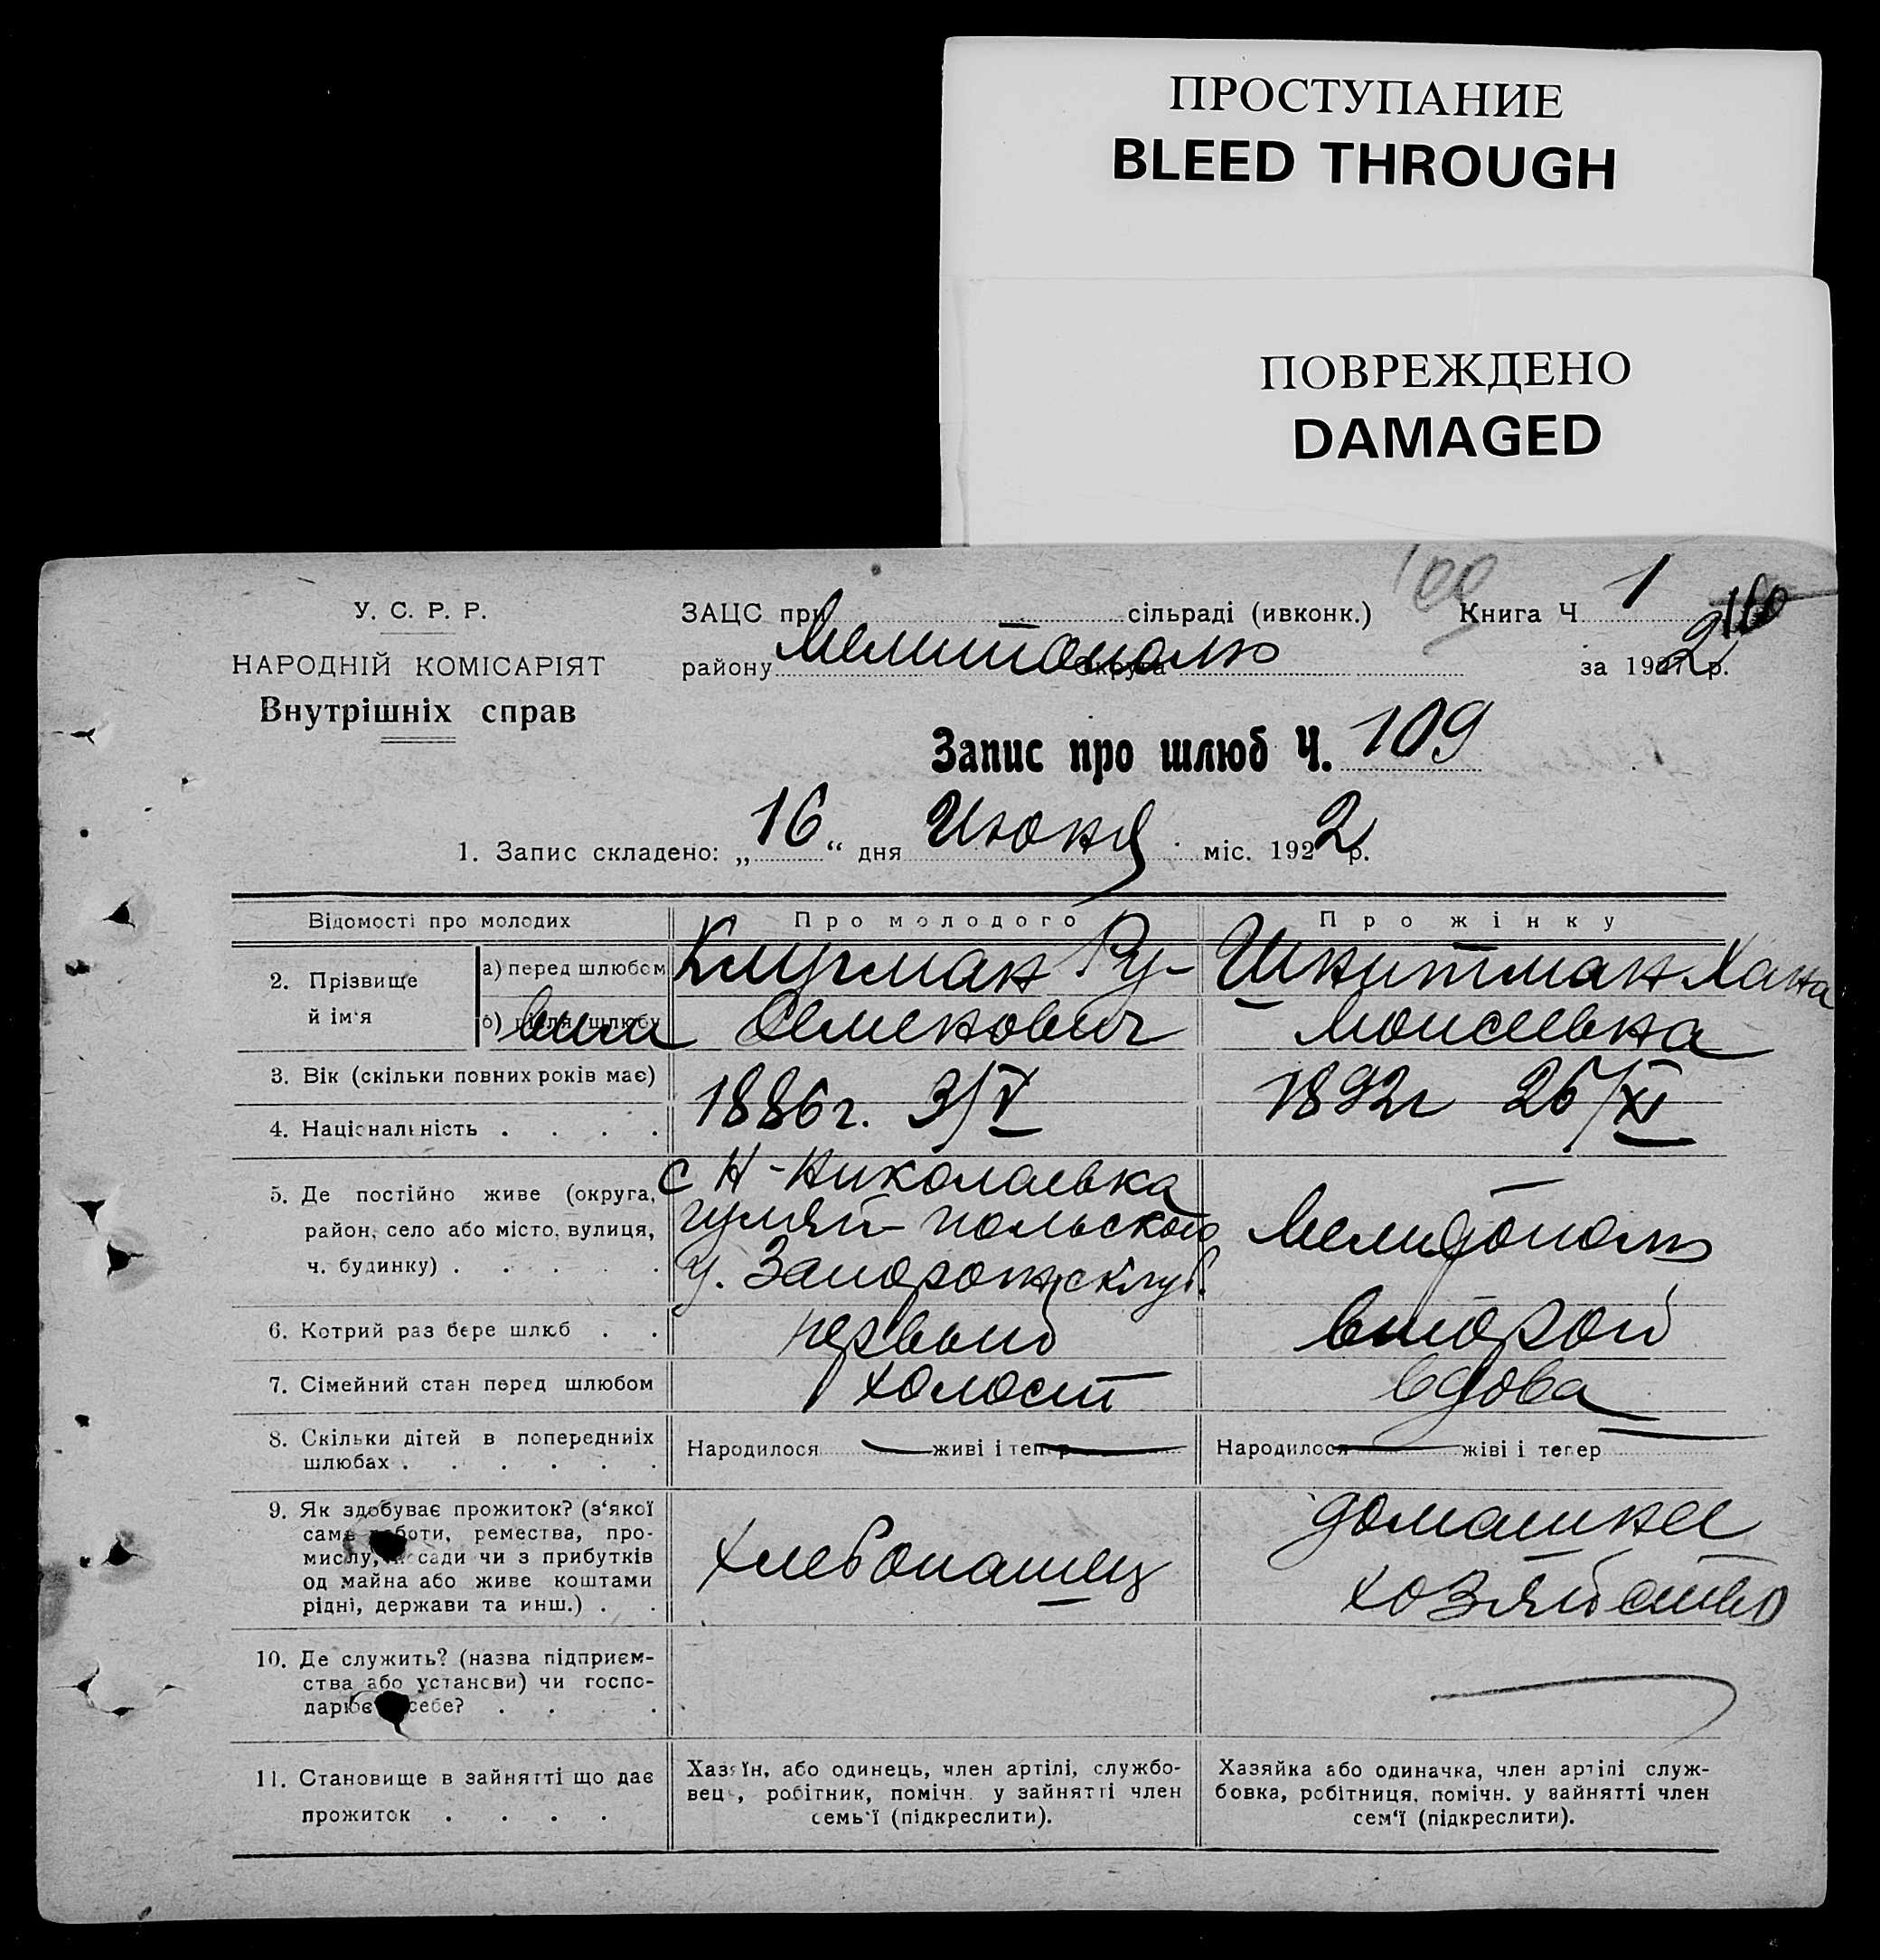 ПРОСТУПАНИЕ
BLEED THROUGH
ПОВРЕЖДЕНО
DAMAGED
У. С. Р. Р.
НАРОДНІЙ КОМІСАРІЯТ
Внутрішніх справ
100
ЗАЦС при сільраді (ивконк.) Книга Ч. 1
району Мелитополь округа за 1922 р.
Запис про шлюб Ч. 109
1. Запис складено: „16“ дня Июня міс. 1922 р.
Відомості про молодих
Про молодого
Про жінку
2. Прізвище й ім‘я
а) перед шлюбом
б) після шлюбу
Ру-
вин Семенович
Шнитман Хана
Моисеевна
3. Вік (скільки повних років має)
1886г. 3/V
1892г 26/XI
4. Національність . . . .
5. Де постійно живе (округа,
район, село або місто, вулиця,
ч. будинку) . . . . .
с Н-Николаевка
гуляй-польского
у. Запорожск губ.
Мелитополь
6. Котрий раз бере шлюб . .
первый
второй
7. Сімейний стан перед шлюбом
холост
вдова
8. Скільки дітей в попередниіх
шлюбах . . . . . .
Народилося живі і тепер
Народилося жіві і тепер
9. Як здобуває прожиток? (з‘якої
саме роботи, ремества, про-
мислу, посади чи з прибутків
од майна або живе коштами
рідні, держави та инш.) . .
хлебопашец
домашнее
хозяйство
10. Де служить? (назва підприєм-
ства або установи) чи госпо-
дарює себе? . . .
11. Становище в зайнятті що дає
прожиток . . . .
Хазяїн, або одинець, член артілі, службо-
вець, робітник, помічн. у зайнятті член
семь‘ї (підкреслити).
Хазяйка або одиначка, член артілі служ-
бовка, робітниця, помічн. у зайнятті член
сем‘ї (підкреслити).